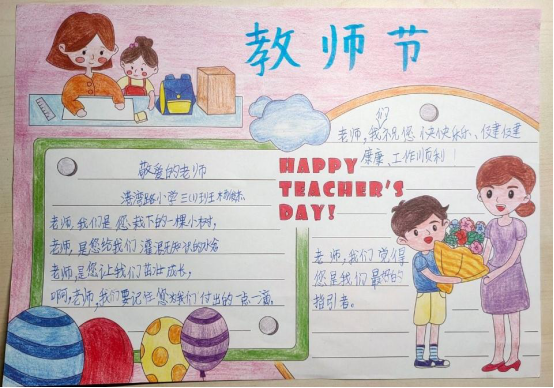 教师节
老师,我们祝您快快乐乐、健健
康康、工作顺利!
HAPPY
TEACHER'S
DAY!
敬爱的老师
港湾路小学三(1)班
老师,我们是您栽下的一棵小树,
老师,是您给我们灌溉知识的水
老师,是您让我们茁壮成长,
啊,老师,我们要记住您为我们付出的一点一滴。
老师,我们觉得
您是我们最好的
指引者。